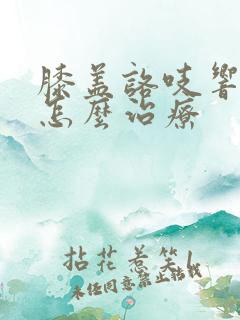 膝盖咯吱响
怎麼治療
拈花惹笑
未经同意禁止转载